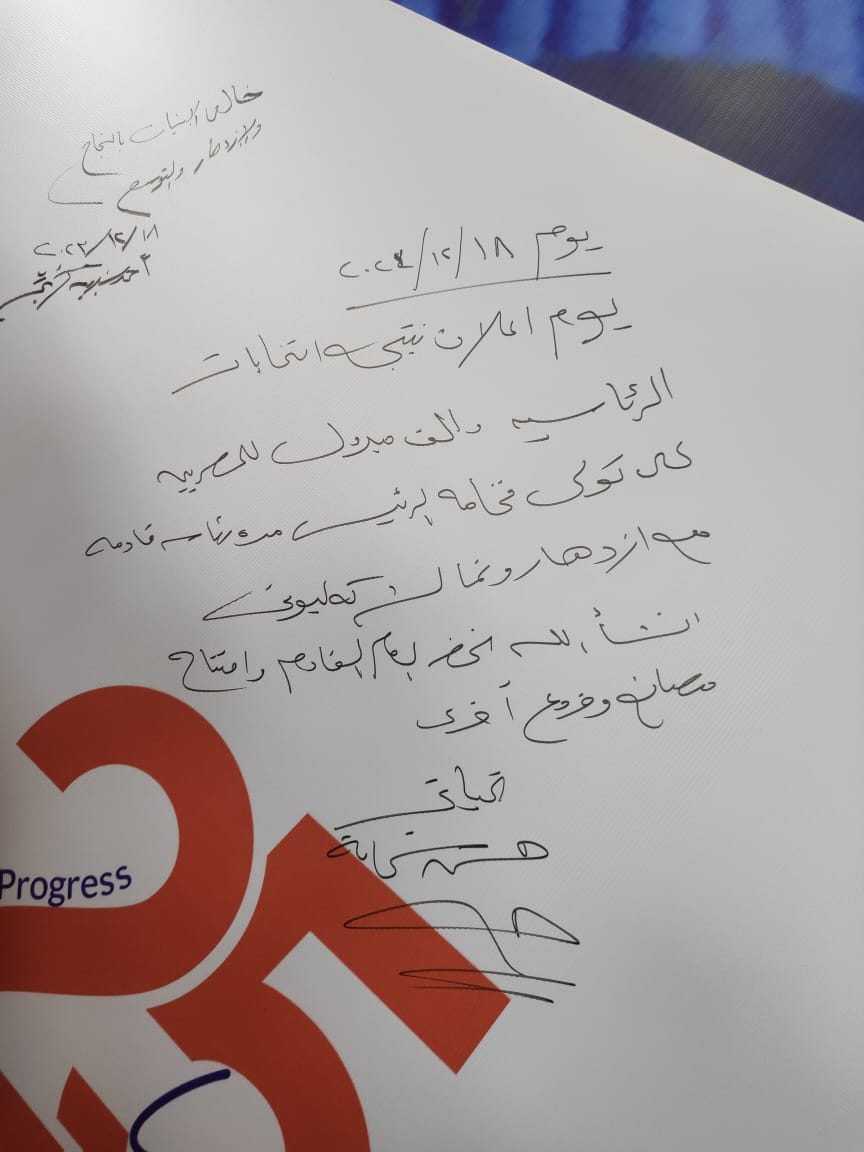 خالص الامنيات بالنجاح
والازدهار والتوسع
٢٠٢٣/١٢/١٨
أحمد
يوم ٢٠٢٤/١٢/١٨
يوم اعلان نتيجه انتخابات
الرئاسيه والف مبروك للمصريين
على تولى فخامه الرئيس مده رئاسه قادمه
مع ازدهار ونما
انشأ الله العام القادم وافتتاح
مصانع وفروع أخرى
تحياتى
حسن شحاتة
Progress